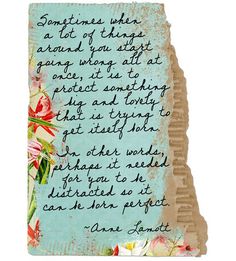 Sometimes when
a lot of things
around you start
going wrong all at
once, it is to
protect something
big and lovely
that is trying to
get itself born
In other words,
perhaps it needed
for you to be
distracted so it
can be born perfect.
~Anne Lamott